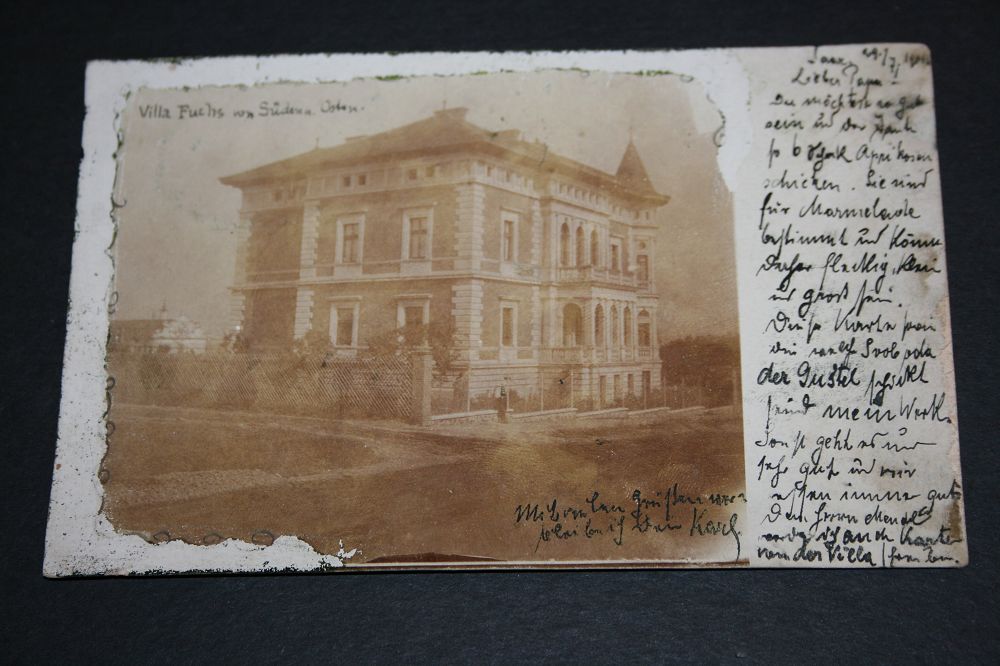 Villa Fuchs von Süden u. Osten.
29./7.
Lieber Papa!
Du möchtest so gut
sein und der
so 6 Aprikosen
schicken. Sie sind
für Marmelade
bestimmt und können
daher fleckig, klein
und groß sein.
Diese Karte
Svoboda
der Gustel schickt
sind mein Werk.
Sonst geht es uns
sehr gut und wir
essen immer gut
Dem Herrn Mendl
ich auch Karten
von der Villa schreiben.
Mit vielen Grüßen ver-
bleibe ich Dein Karl